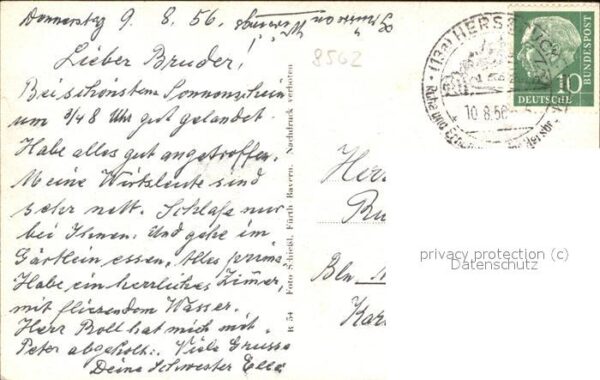 Donnerstag 9. 8. 56.
Lieber Bruder!
Bei schönstem Sonnenschein
um 3/48 Uhr gut gelandet.
Habe alles gut angetroffen.
Meine Wirtsleute sind
sehr nett. Schlafe nur
bei Ihnen. Und gehe im
Gärtlein essen, Alles prima.
Habe ein herrliches Zimer,
mit fliesendem Wasser.
Herr Roll hat mich mit
Peter abgeholt. Viele Grüsse
Deine Schwester Ella
8562
R 54 Foto Schießl, Fürth Bayern. Nachdruck verboten
(13a) HERSBRUCK
10.8.56
DEUTSCHE
BUNDESPOST
10
Her
Bln
privacy protection (c)
Datenschutz